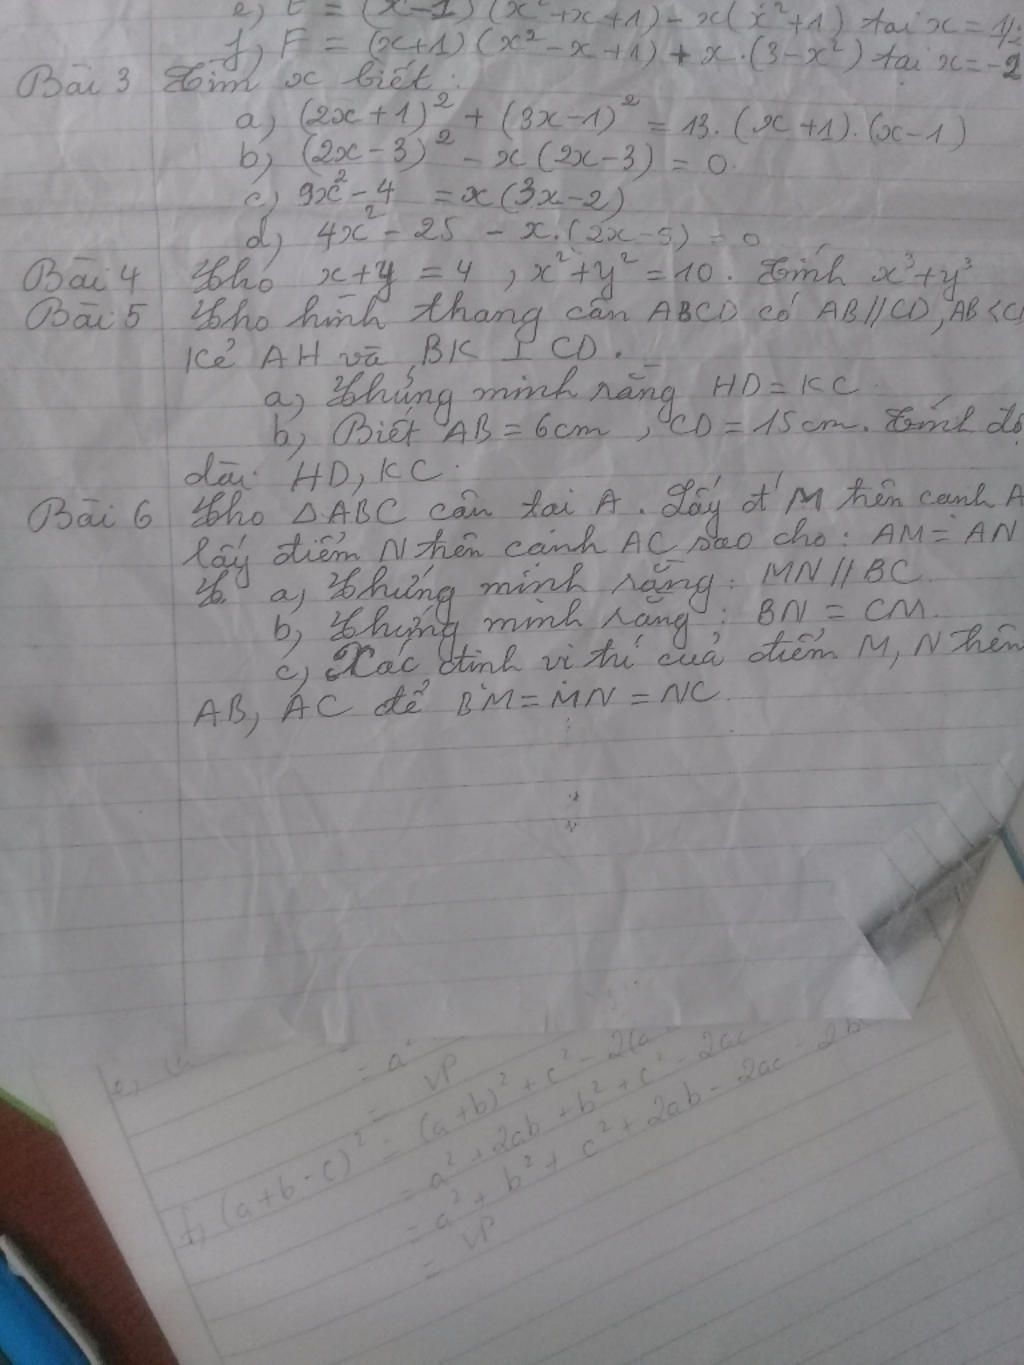 e) E = (x-1)(x²+x+1) - x(x²+1) tại x =
f) F = (x+1)(x²-x+1) + x.(3-x²) tại x = -2
Bài 3 Tìm x biết:
a) (2x+1)² + (3x-1)² = 13.(x+1).(x-1)
b) (2x-3)² - x(2x-3) = 0.
c) 9x²-4 = x(3x-2)
d) 4x²-25 - x.(2x-5) = 0
Bài 4 Cho x+y = 4 , x²+y² = 10. Tính x³+y³
Bài 5 Cho hình thang cân ABCD có AB//CD, AB<C
Kẻ AH và BK ⊥ CD.
a) Chứng minh rằng HD=KC.
b) Biết AB=6cm , CD=15cm. Tính độ
dài: HD, KC.
Bài 6 Cho △ABC cân tại A. Lấy đ' M trên cạnh A
lấy điểm N trên cạnh AC sao cho: AM=AN
a) Chứng minh rằng: MN//BC.
b) Chứng minh rằng: BN = CM.
c) Xác định vị trí của điểm M, N trên
AB, AC để BM=MN=NC.
e)
= a²
= VP
f) (a+b-c)² = (a+b)² + c² - 2(a
= a² + 2ab + b² + c² - 2ac - 2b
= a² + b² + c² + 2ab - 2ac
= VP